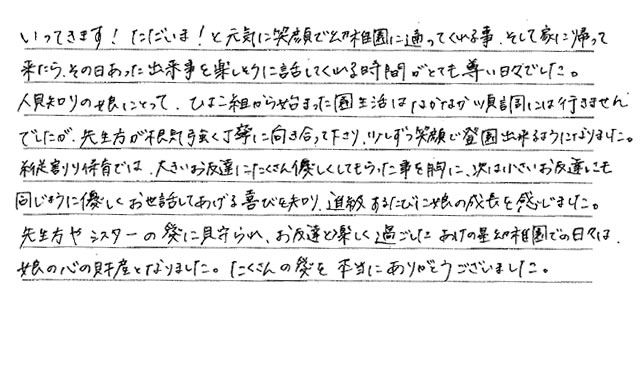 いってきます！ただいま！と元気に笑顔で幼稚園に通ってくれる事、そして家に帰って
来たら、その日あった出来事を楽しそうに話してくれる時間がとても尊い日々でした。
人見知りの娘にとって、ひよこ組から始まった園生活はなかなか順調には行きません
でしたが、先生方が根気強く丁寧に向き合って下さり、少しずつ笑顔で登園出来るようになりました。
縦割り保育では、大きいお友達にたくさん優しくしてもらった事を胸に、次は小さいお友達にも
同じように優しくお世話してあげる喜びを知り、進級するたびに娘の成長を感じました。
先生方やシスターの愛に見守られ、お友達と楽しく過ごしたあけの星幼稚園での日々は、
娘の心の財産となりました。たくさんの愛を本当にありがとうございました。